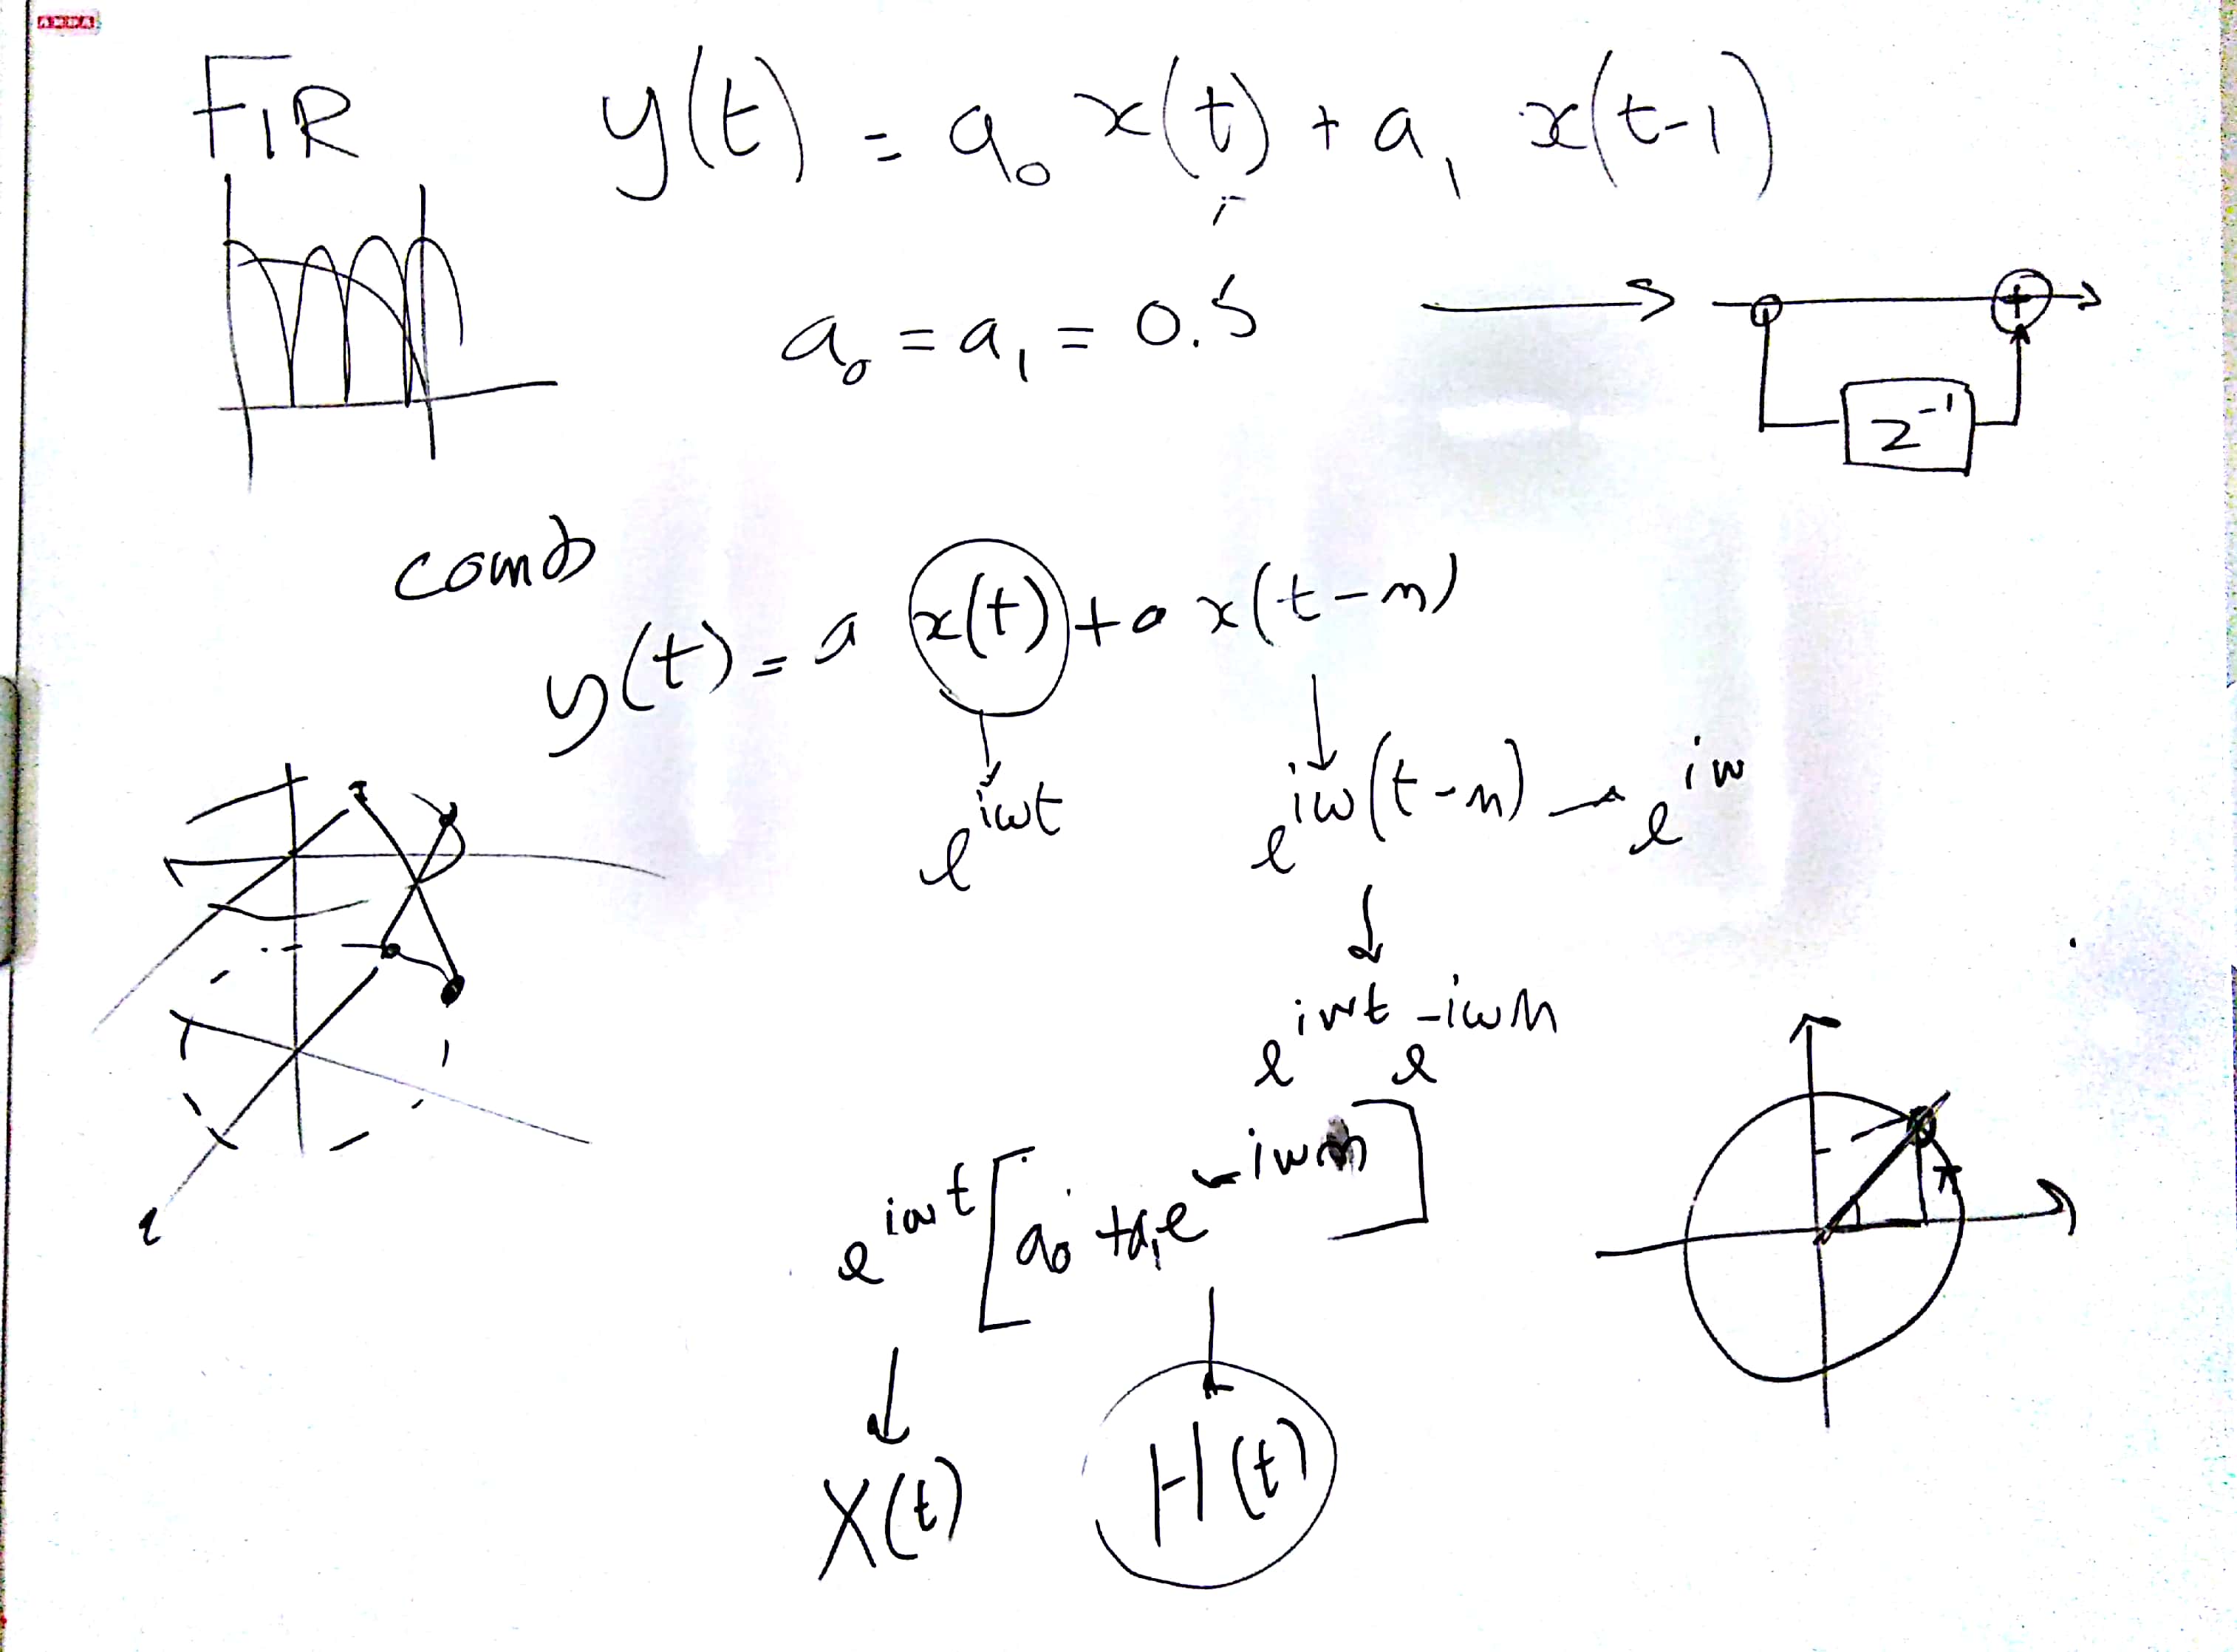 FIR y(t) = a₀ x(t) + a₁ x(t-1)
a₀ = a₁ = 0.5
z⁻¹
comb
y(t) = a x(t) + a x(t-n)
e^iwt e^iw(t-n) → e^iw
e^iwt e^-iwn
e^iwt [a₀ + a₁e^-iwn]
X(t) H(t)